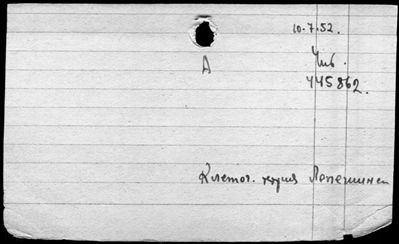 10.7.52.
А
Инв.
445862.
Клеточ. теория Лепешинск